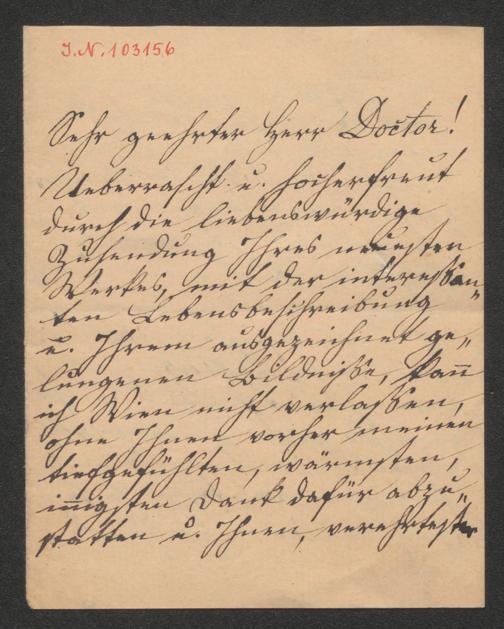 I.N. 103156
Sehr geehrter Herr Doctor!
Ueberrascht u. hocherfreut
durch die liebenswürdige
Zusendung Ihres neuesten
Werkes, mit der interessan-
ten Lebensbeschreibung
u. Ihrem ausgezeichnet ge-
lungenen Bildnisse, kann
ich Wien nicht verlassen,
ohne Ihnen vorher meinen
tiefgefühlten, wärmsten,
innigsten Dank dafür abzu-
statten u. Ihnen, verehrtester